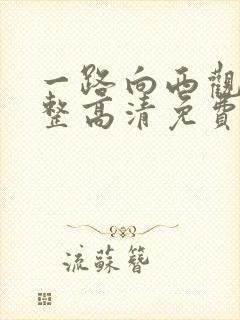 一路向西觀
整高清免費
流蘇簪